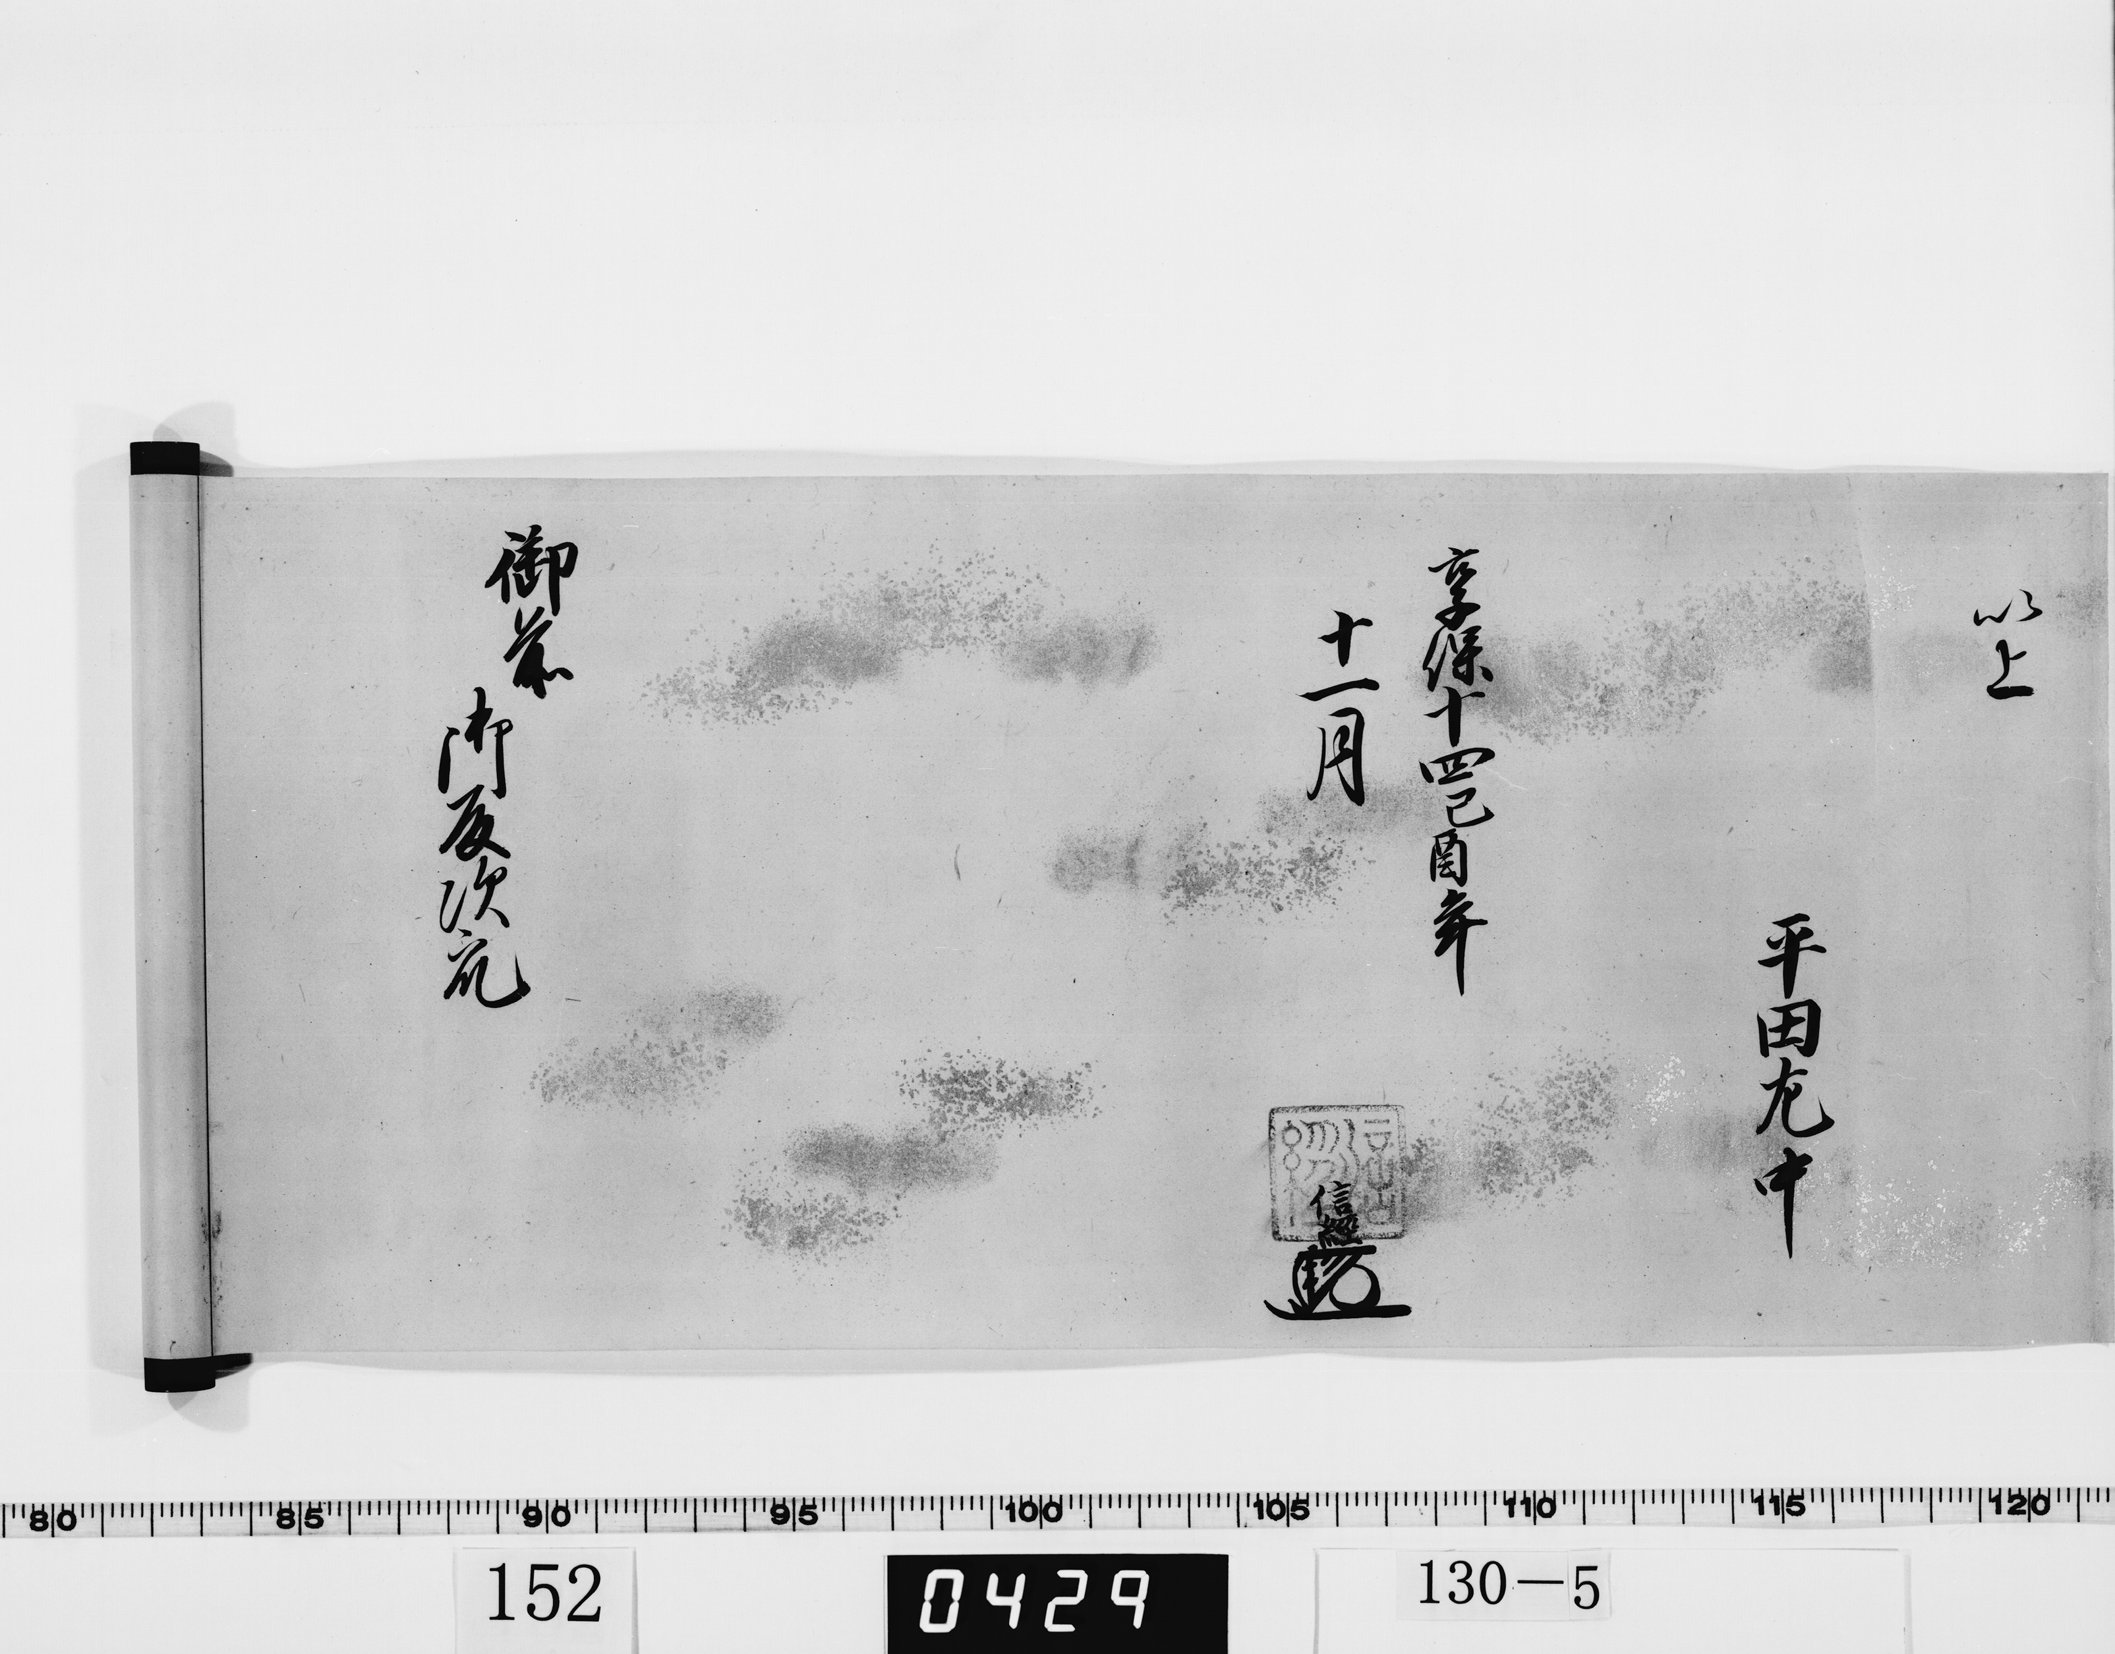 以上
平田左中
享保十四己酉年
十一月
信經
御前
御取次衆
80 85 90 95 100 105 110 115 120
152
0429
130－5